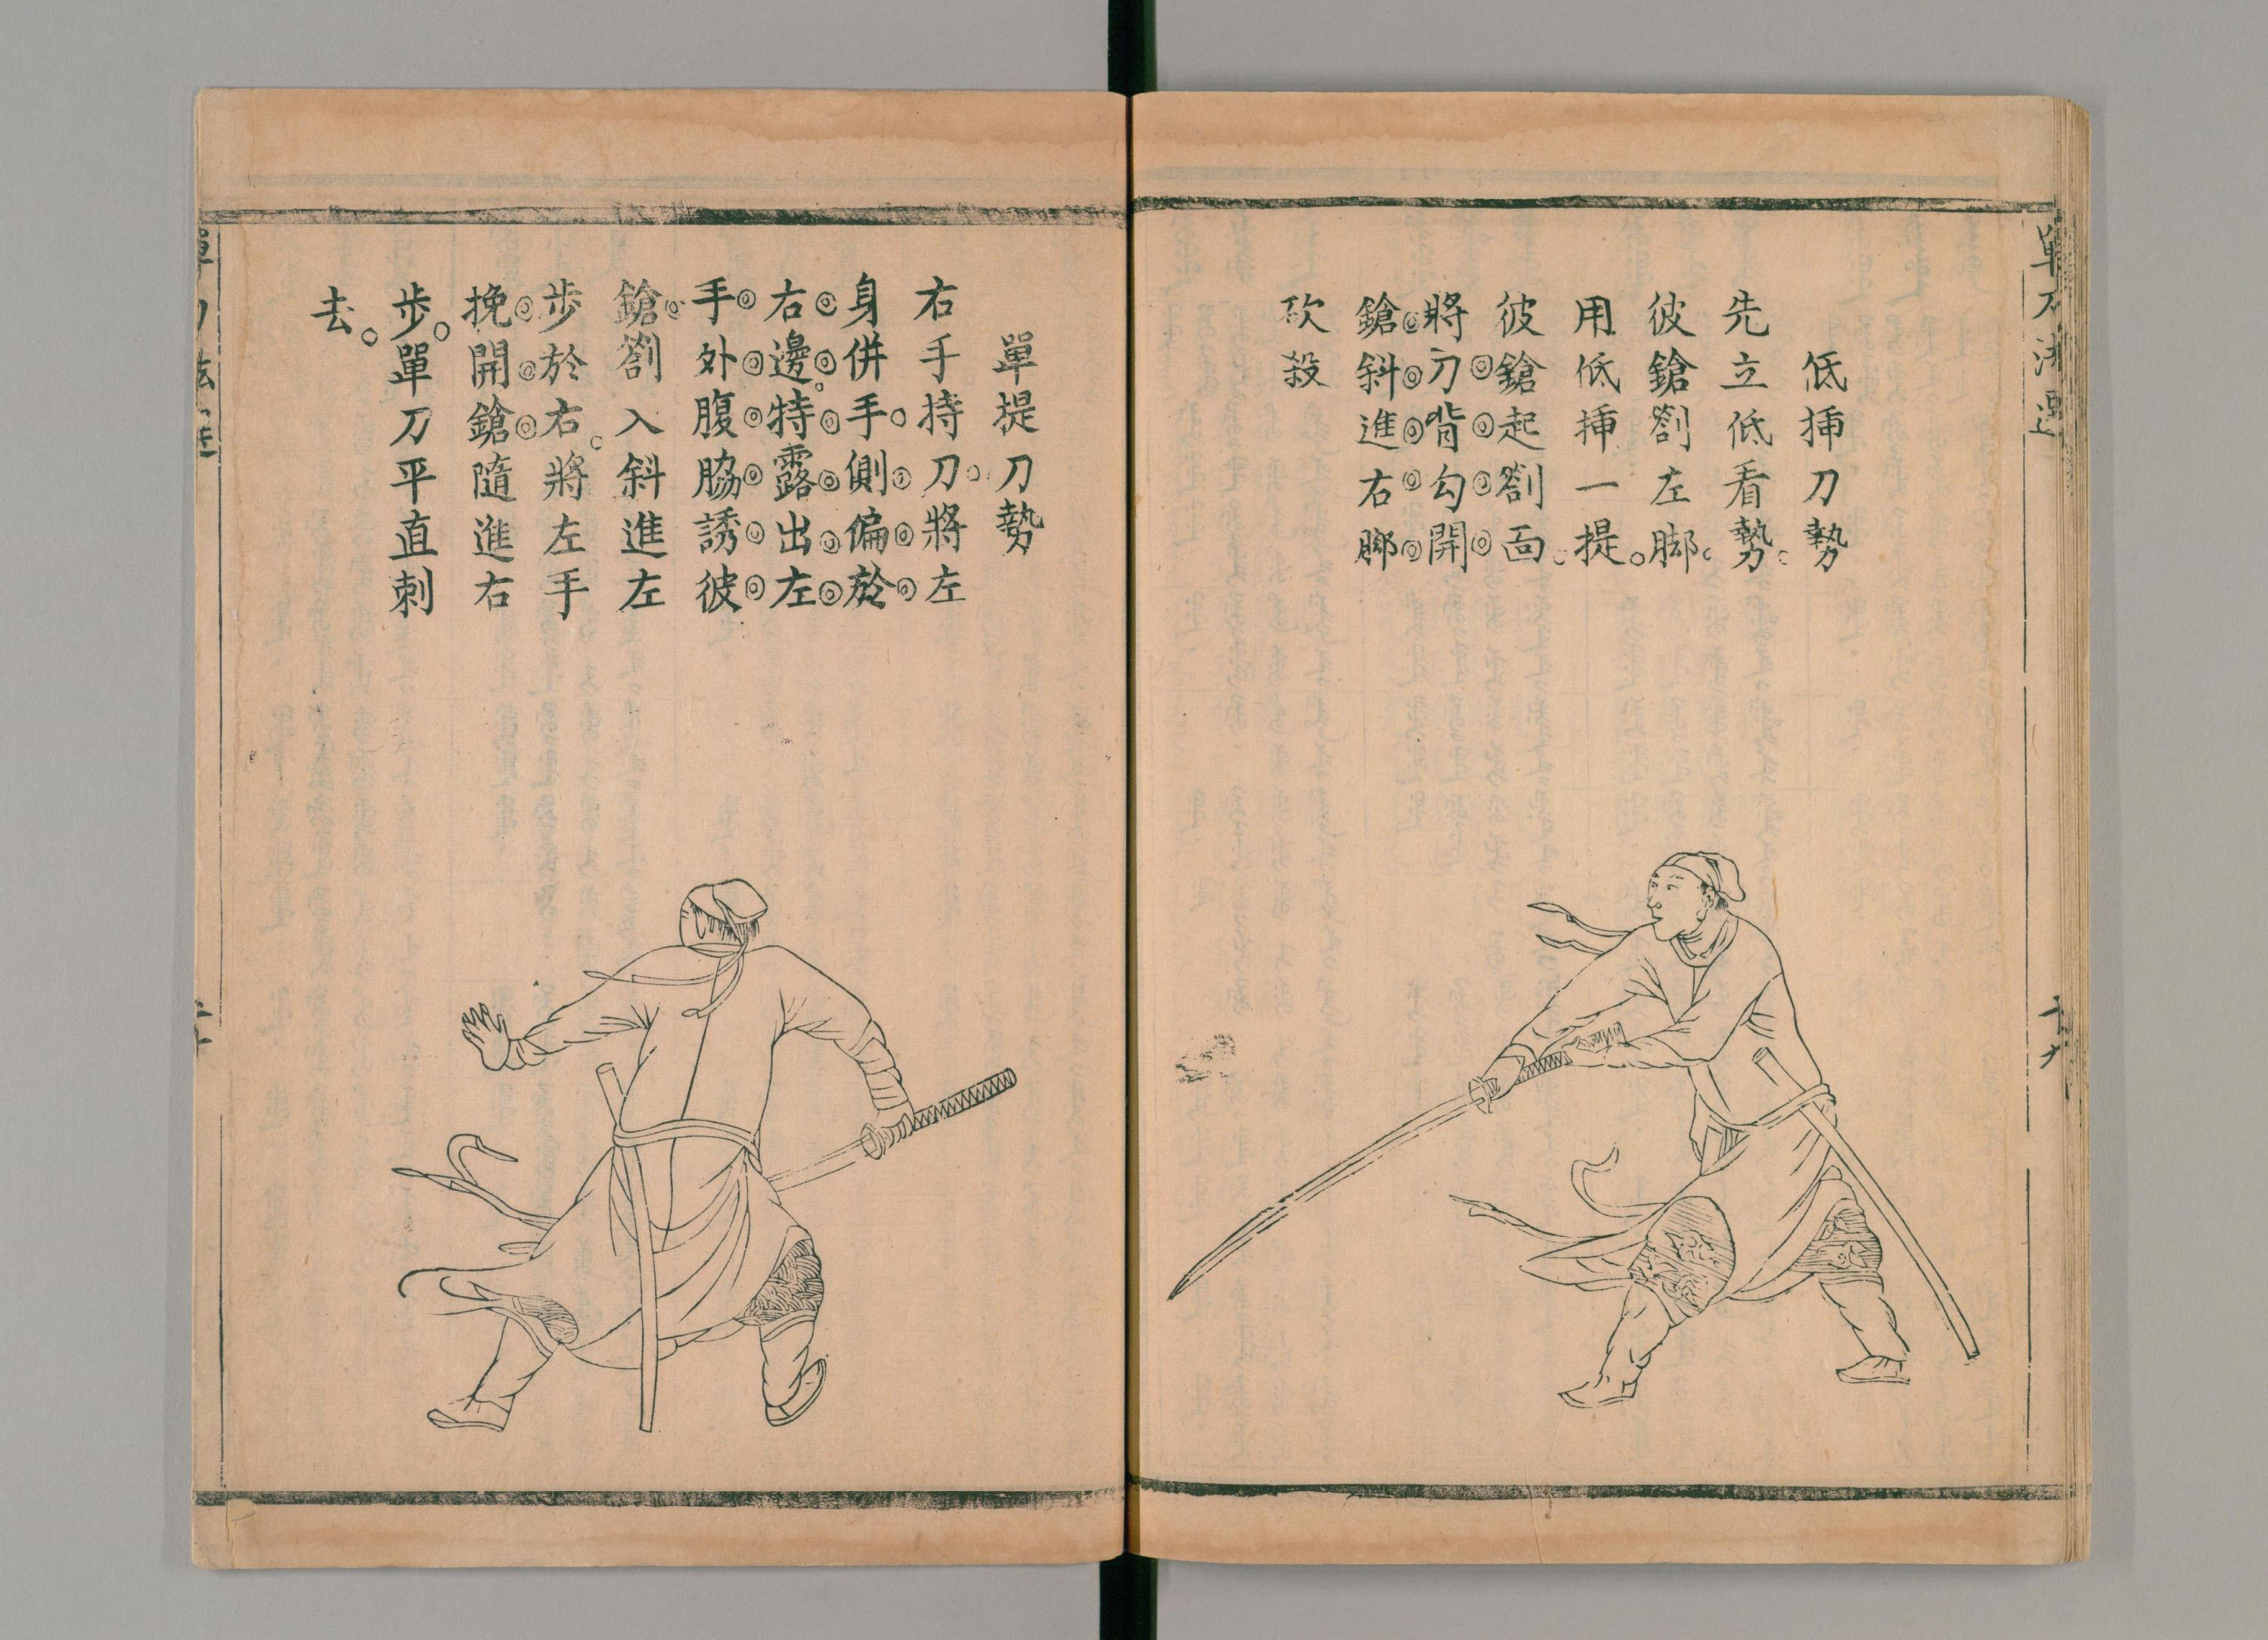 單刀法選
十九
低揷刀勢
先立低看勢。
彼鎗劄左脚。
用低揷一提。
彼鎗起劄面。
將刀背勾開
鎗斜進右脚
砍殺
單提刀勢
右手持刀。將左
身併手側偏於
右邊。特露出左
手外腹脇誘彼
鎗劄入斜進左
步於右。將左手
挽開鎗隨進右
步。單刀平直刺
去。
單刀法選